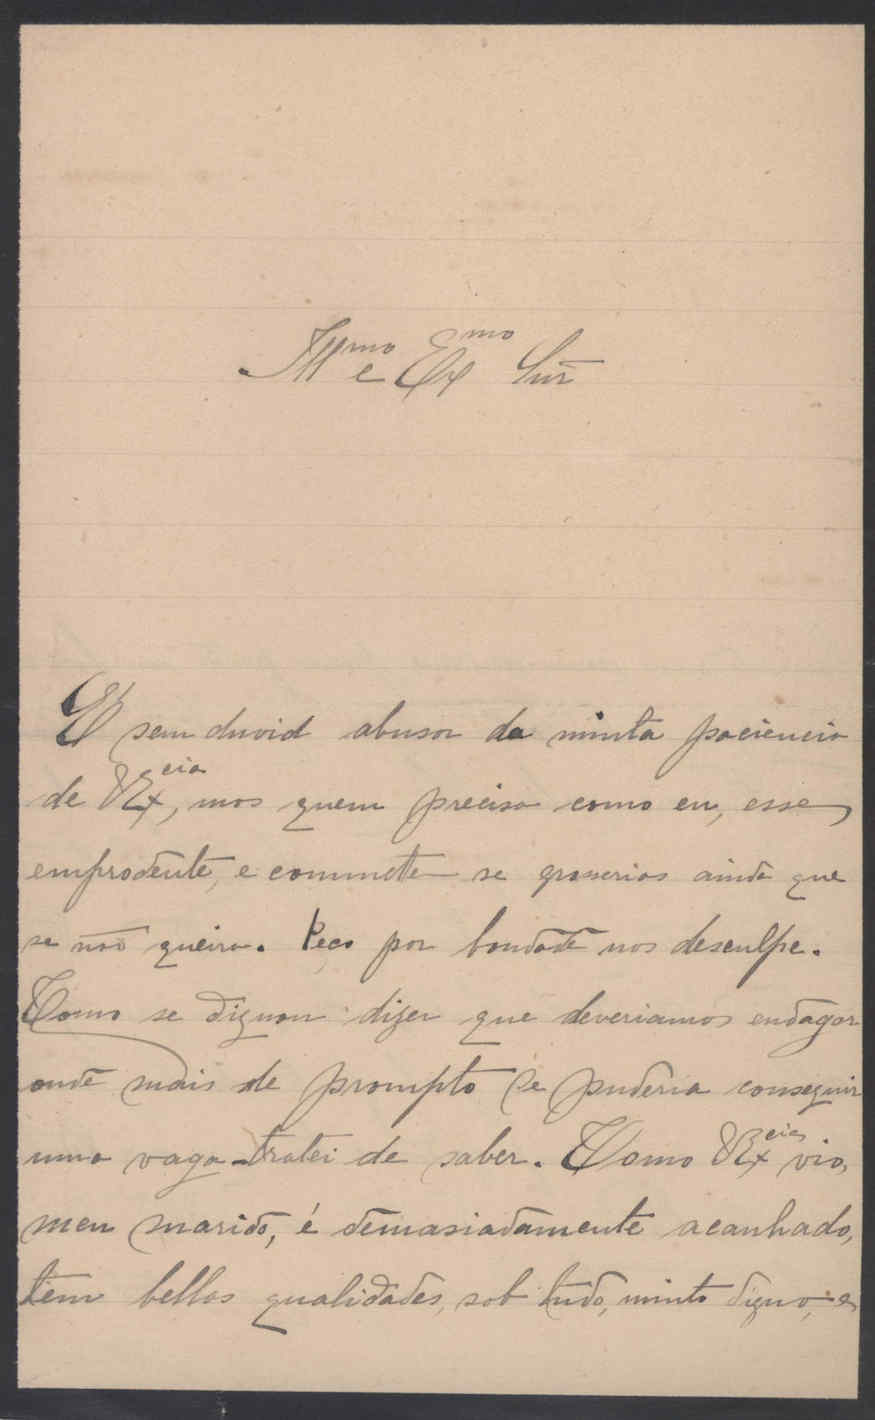 Illmo e Exmo Snr
É sem duvid abusar da minta paciencia
de VExcia, mas quem precisa como eu, esse
emprodente, e commete se groserias ainda que
se não queira. Peço por bondade nos desculpe.
Como se dignou dizer que deveriamos endagar
onde mais de prompto se puderia conseguir
uma vaga tratei de saber. Como VExcia vio,
meu marido, é demasiadamente acanhado,
tem bellas qualidades, sob tudo, muito digno, e